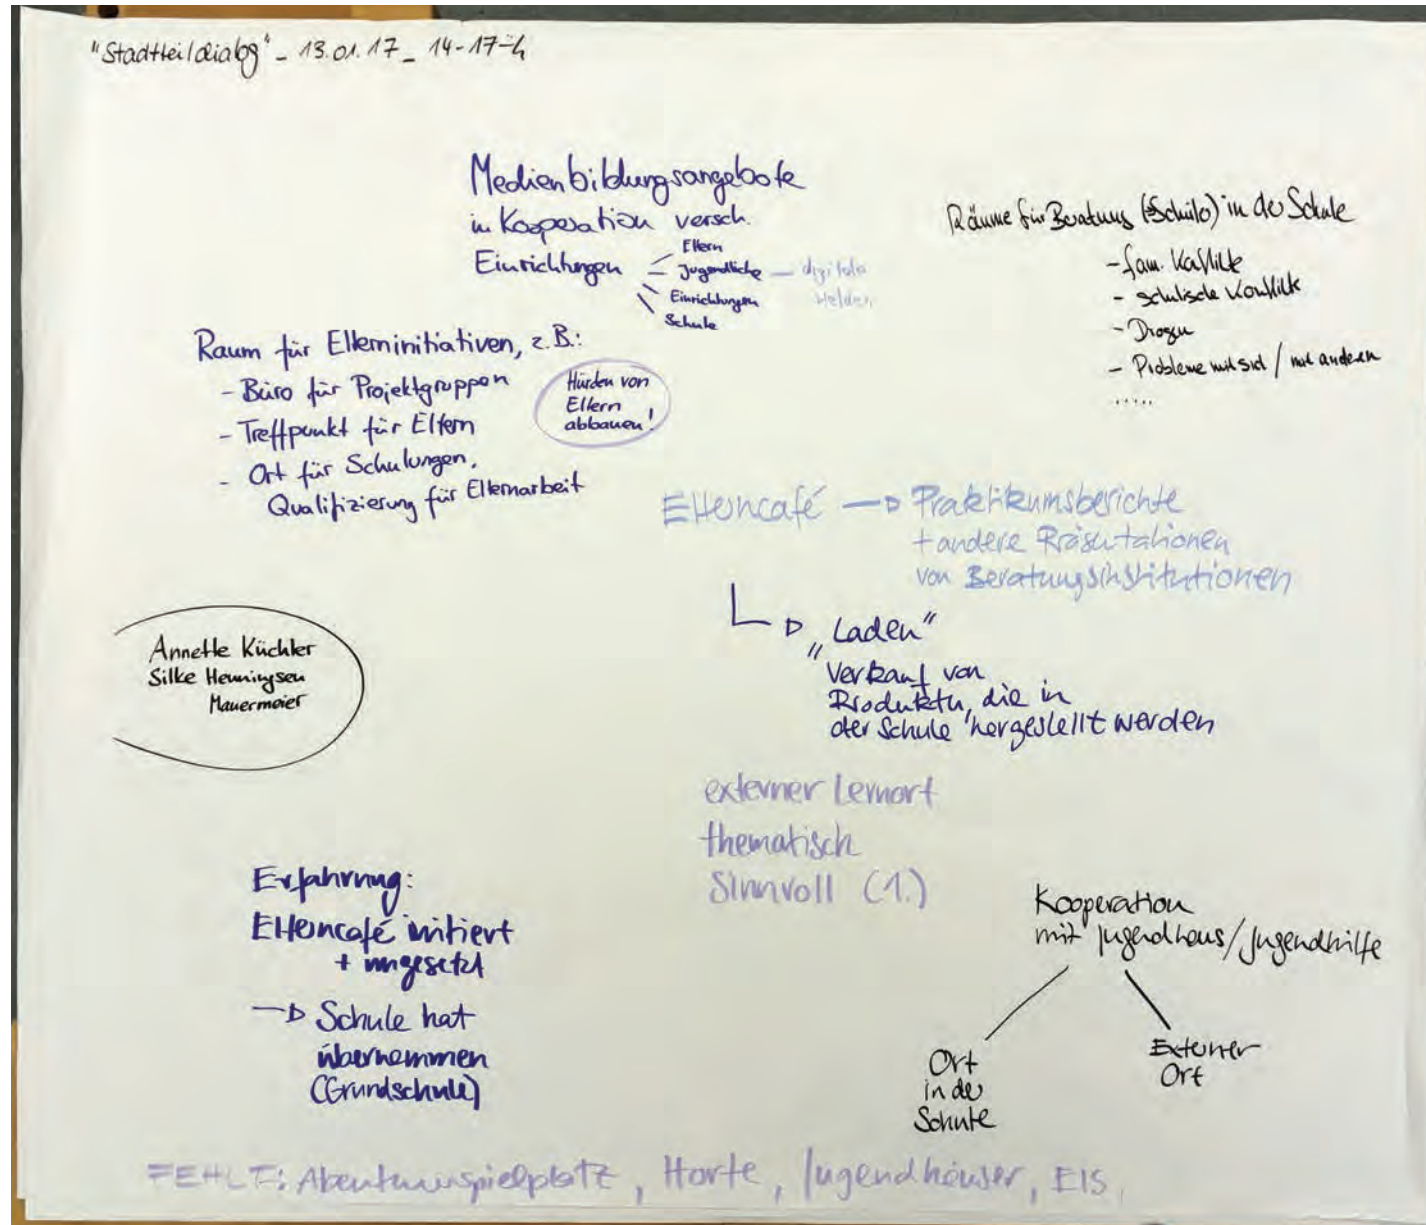 "Stadtteildialog" - 13.01.17 - 14-17 h
Medienbildungsangebote
in Kooperation versch.
Einrichtungen
Eltern
Jugendliche — digitale
Helden
Einrichtungen
Schule
Räume für Beratung (Schülo) in der Schule
- fam. Konflikte
- schulische Konflikte
- Drogen
- Probleme mit sich / mit anderen
.....
Raum für Elterninitiativen, z.B.:
- Büro für Projektgruppen
- Treffpunkt für Eltern
- Ort für Schulungen,
Qualifizierung für Elternarbeit
Hürden von
Eltern
abbauen!
Elterncafé → Praktikumsberichte
+ andere Präsentationen
von Beratungsinstitutionen
→ "Laden"
Verkauf von
Produkten, die in
der Schule hergestellt werden
Annette Küchler
Silke Henningsen
Mauermeier
externer Lernort
thematisch
sinnvoll (1.)
Erfahrung:
Elterncafé initiiert
+ umgesetzt
→ Schule hat
übernommen
(Grundschule)
Kooperation
mit Jugendhaus/Jugendhilfe
Ort
in der
Schule
Externer
Ort
FEHLT: Abenteuerspielplatz, Horte, Jugendhäuser, EIS,